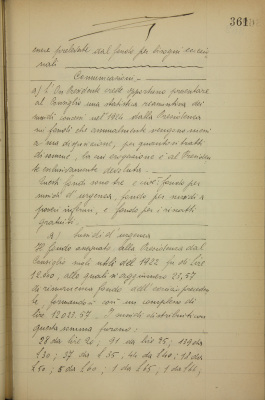 361
essere prelevate dal fondo per bisogni
Comunicazioni
a) Il Presidente crede opportuno presentare
al Consiglio una statistica riassuntiva dei
sussidi concessi nel dalla Presidenza
sui fondi che annualmente vengono messi
a sua disposizione, per quanto si tratti
di somme, la cui erogazione è al Presiden
te esclusivamente devoluta.
Questi fondi sono tre, e cioè: fondo per
sussidi d'urgenza, fondo per sussidi a
poveri infermi, e fondo per i
gratuiti.
a) Sussidi d'urgenza
Il fondo assegnato alla Presidenza dal
Consiglio nel 1922 fu di Lire
alle quali si aggiunsero 21,57
di rimanenza fondo dell'
te, formandosi così un complesso di
Lire 12033.57. I sussidi distribuiti con
questa somma furono:
28 da Lire 20, 91 da Lire 25, 139 da
L 30; 37 da L 35, 44 da L 40; 18 da
L 50; 5 da L 60; 1 da L 65; 1 da